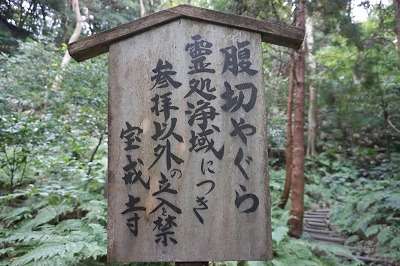 腹切やぐら
霊処浄域につき
参拝以外の立入を禁ず
宝戒寺